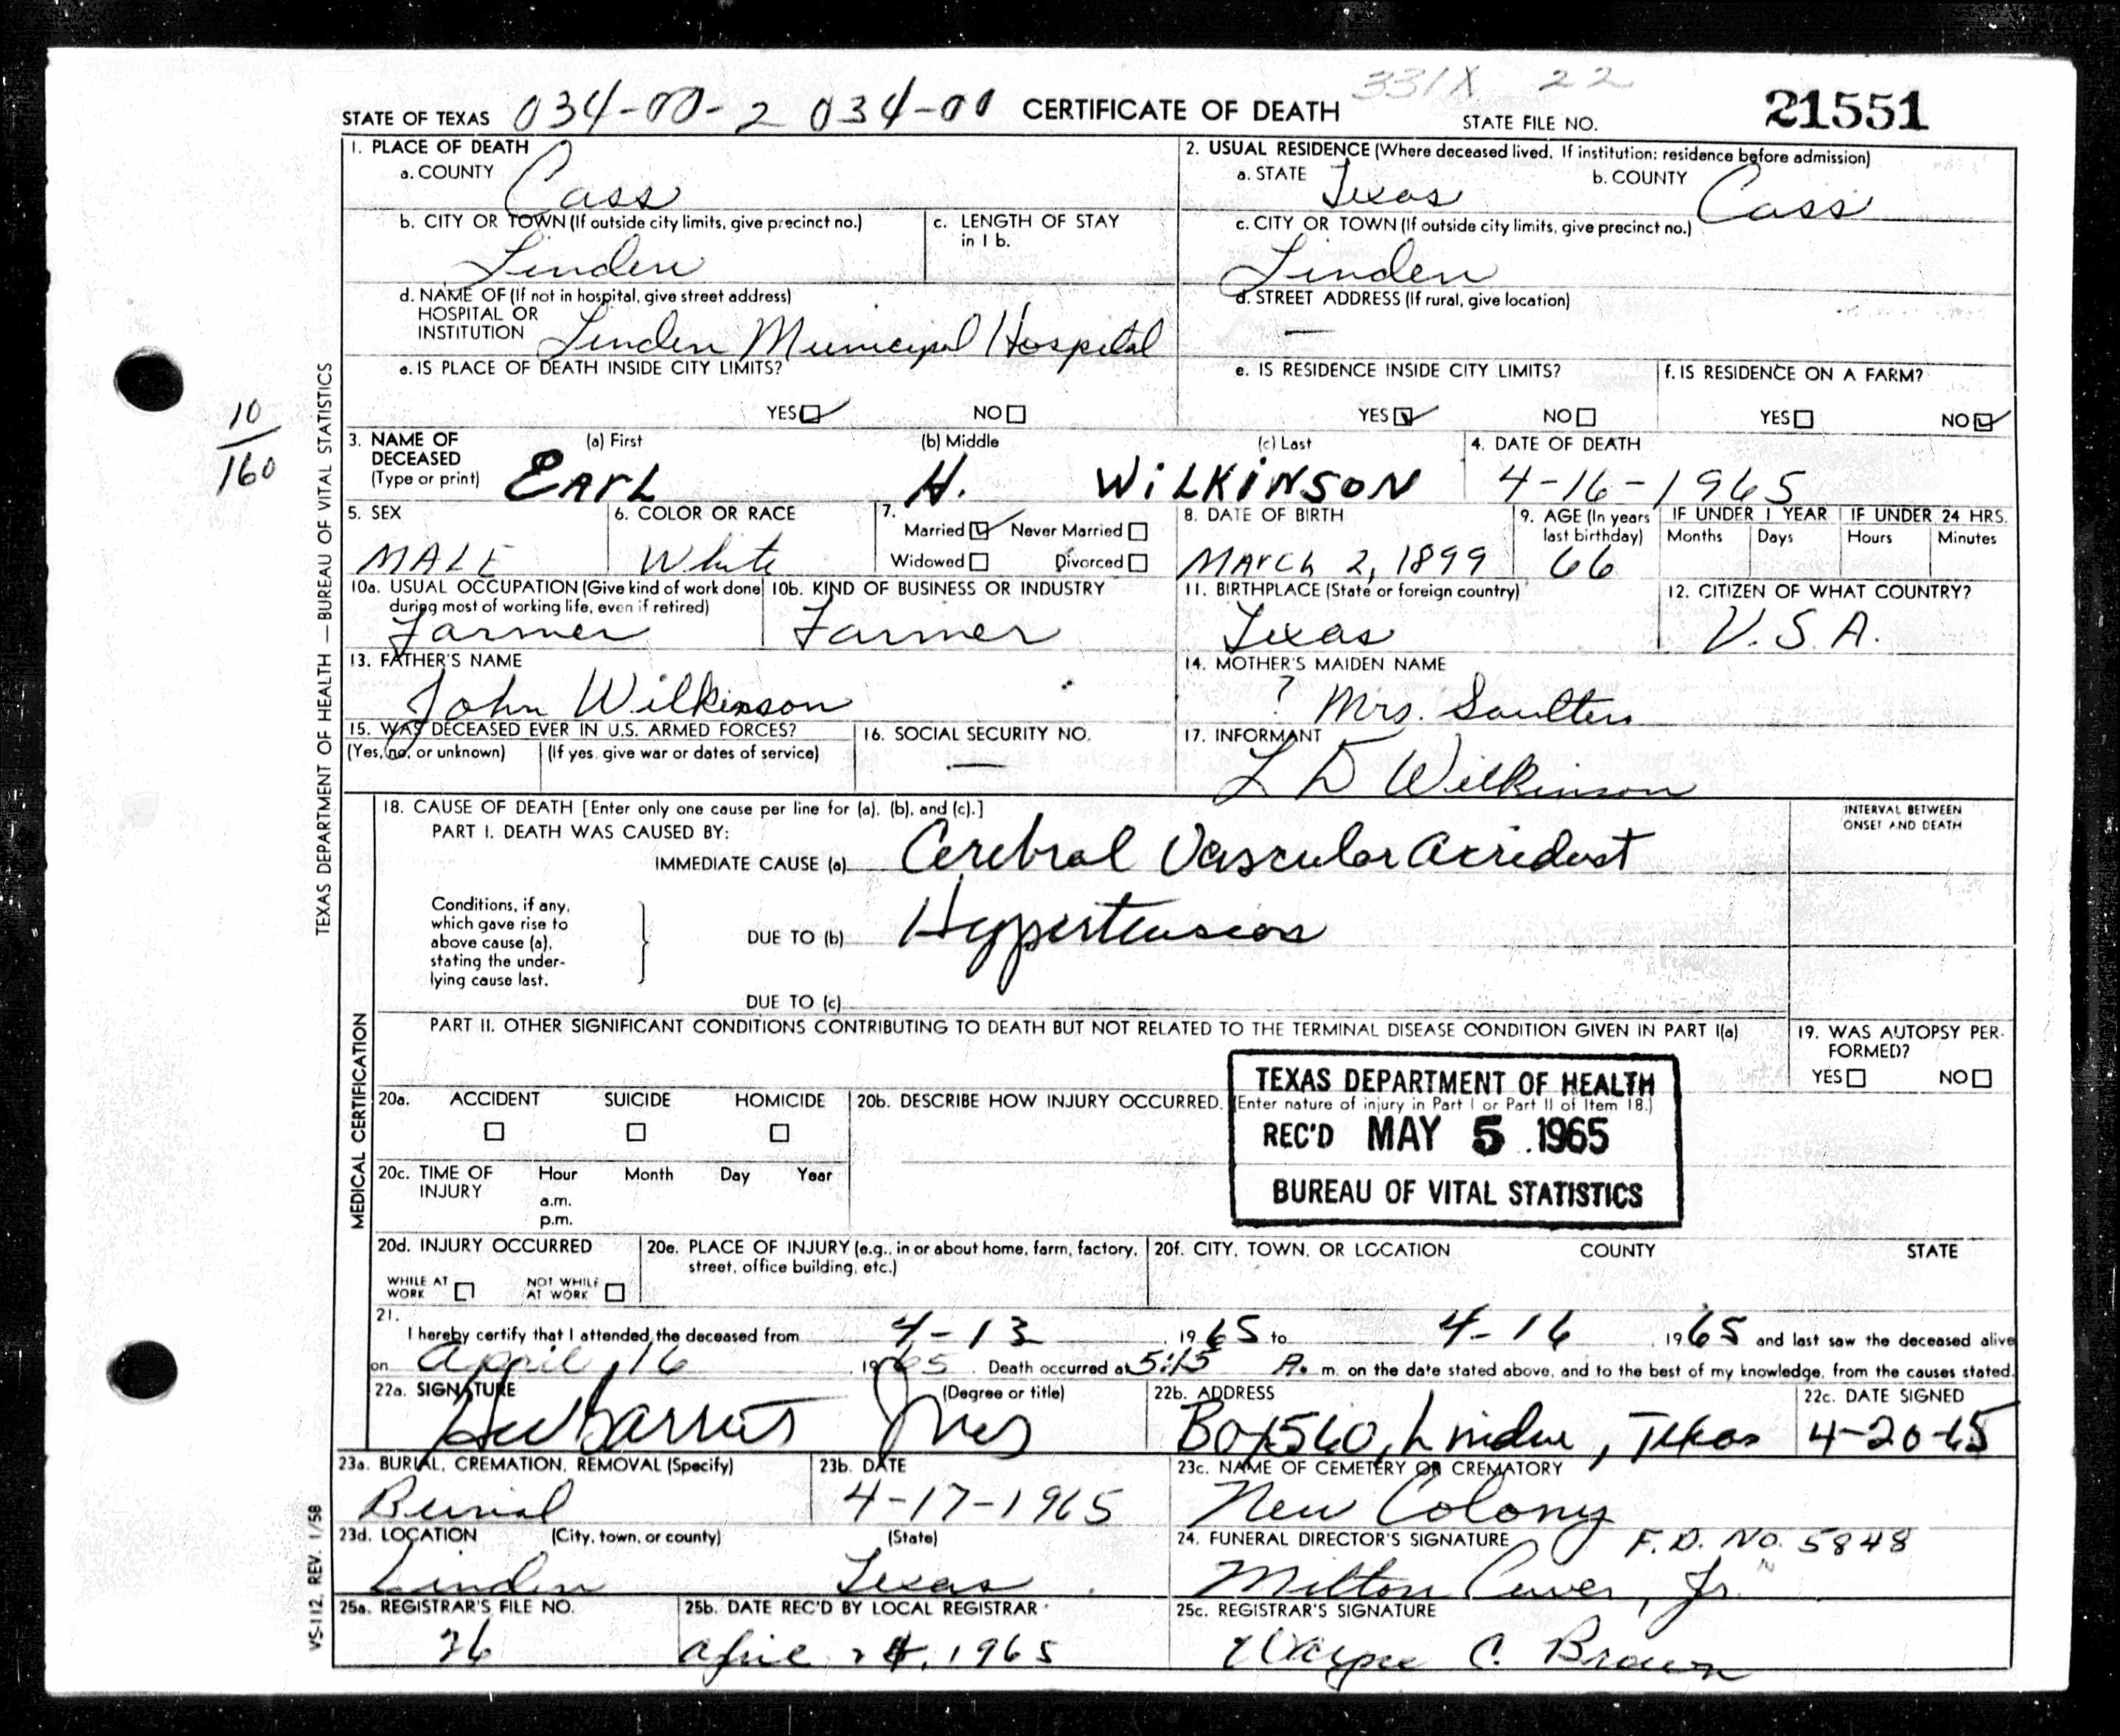 331X 22
STATE OF TEXAS 034-00-2 034-00 CERTIFICATE OF DEATH STATE FILE NO. 21551
1. PLACE OF DEATH
a. COUNTY Cass
2. USUAL RESIDENCE (Where deceased lived. If institution: residence before admission)
a. STATE Texas b. COUNTY Cass
b. CITY OR TOWN (If outside city limits, give precinct no.) Linden
c. LENGTH OF STAY in 1 b.
c. CITY OR TOWN (If outside city limits, give precinct no.) Linden
d. NAME OF (If not in hospital, give street address)
HOSPITAL OR
INSTITUTION Linden Municipal Hospital
d. STREET ADDRESS (If rural, give location) —
e. IS PLACE OF DEATH INSIDE CITY LIMITS?
YES NO
e. IS RESIDENCE INSIDE CITY LIMITS?
YES NO
f. IS RESIDENCE ON A FARM?
YES NO
10
160
3. NAME OF DECEASED (Type or print) (a) First (b) Middle (c) Last
Earl H. Wilkinson
4. DATE OF DEATH
4-16-1965
5. SEX
MALE
6. COLOR OR RACE
White
7. Married Never Married
Widowed Divorced
8. DATE OF BIRTH
March 2, 1899
9. AGE (In years last birthday)
66
IF UNDER 1 YEAR
Months Days
IF UNDER 24 HRS.
Hours Minutes
10a. USUAL OCCUPATION (Give kind of work done during most of working life, even if retired)
Farmer
10b. KIND OF BUSINESS OR INDUSTRY
Farmer
11. BIRTHPLACE (State or foreign country)
Texas
12. CITIZEN OF WHAT COUNTRY?
U.S.A.
13. FATHER'S NAME
John Wilkinson
14. MOTHER'S MAIDEN NAME
? Mrs.
15. WAS DECEASED EVER IN U.S. ARMED FORCES?
(Yes, no, or unknown) (If yes, give war or dates of service)
16. SOCIAL SECURITY NO.
—
17. INFORMANT
L D Wilkinson
18. CAUSE OF DEATH [Enter only one cause per line for (a), (b), and (c).]
INTERVAL BETWEEN ONSET AND DEATH
PART I. DEATH WAS CAUSED BY:
IMMEDIATE CAUSE (a) Cerebral Vascular Accident
Conditions, if any, which gave rise to above cause (a), stating the under-lying cause last.
DUE TO (b) Hypertension
DUE TO (c)
PART II. OTHER SIGNIFICANT CONDITIONS CONTRIBUTING TO DEATH BUT NOT RELATED TO THE TERMINAL DISEASE CONDITION GIVEN IN PART I(a)
19. WAS AUTOPSY PER-FORMED?
YES NO
TEXAS DEPARTMENT OF HEALTH
REC'D MAY 5 1965
BUREAU OF VITAL STATISTICS
20a. ACCIDENT SUICIDE HOMICIDE
20b. DESCRIBE HOW INJURY OCCURRED. (Enter nature of injury in Part I or Part II of Item 18.)
20c. TIME OF INJURY Hour Month Day Year
a.m.
p.m.
20d. INJURY OCCURRED
WHILE AT WORK NOT WHILE AT WORK
20e. PLACE OF INJURY (e.g., in or about home, farm, factory, street, office building, etc.)
20f. CITY, TOWN, OR LOCATION COUNTY STATE
21.
I hereby certify that I attended the deceased from 4-13, 1965 to 4-16 1965 and last saw the deceased alive
on April 16, 1965. Death occurred at 5:15 A. m. on the date stated above, and to the best of my knowledge, from the causes stated.
22a. SIGNATURE (Degree or title)
22b. ADDRESS
Box 560, Linden, Texas
22c. DATE SIGNED
4-20-65
23a. BURIAL, CREMATION, REMOVAL (Specify)
Burial
23b. DATE
4-17-1965
23c. NAME OF CEMETERY OR CREMATORY
New Colony
23d. LOCATION (City, town, or county) (State)
Linden Texas
24. FUNERAL DIRECTOR'S SIGNATURE F.D. No. 5848
Milton Jr.
25a. REGISTRAR'S FILE NO.
36
25b. DATE REC'D BY LOCAL REGISTRAR
April 24, 1965
25c. REGISTRAR'S SIGNATURE
Wayne C. Brown
TEXAS DEPARTMENT OF HEALTH — BUREAU OF VITAL STATISTICS
MEDICAL CERTIFICATION
VS-112, REV. 1/58